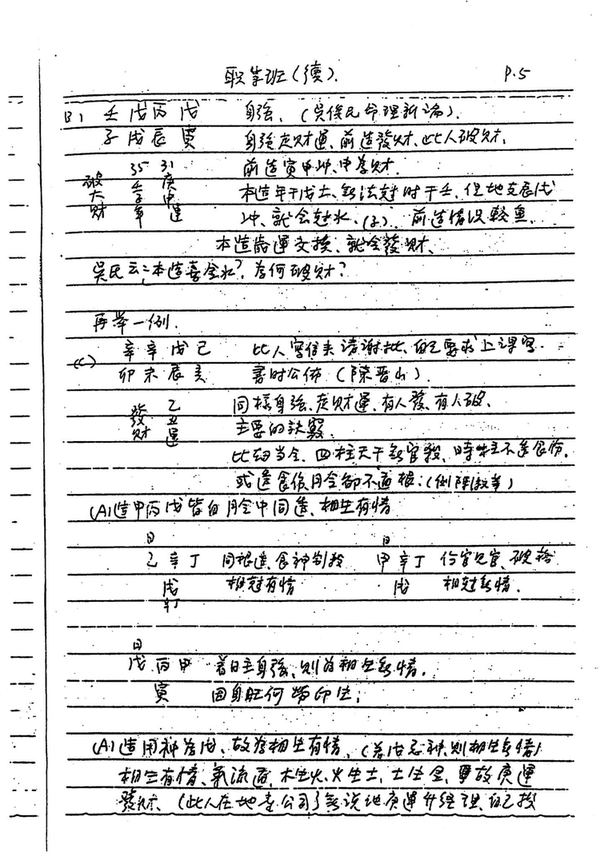 职業班(續). P.5
B) 壬戊丙戊 身強、(吳俊民命理新論).
子戌辰寅 身強走财運、前造發财、此人破财.
35 31 前造寅申冲、申為财.
破大财 壬子年 庚申運 本造年干戊土、無法尅時干壬、但地支辰戌
冲、就会尅水、 前造情况較
本造 運交换、就会發财、
吳氏云:本造喜金水?為何破财?
再举一例.
(C) 辛辛戊己 此人寫信来請謝批、自己要求上課寫.
卯未辰亥 書時公佈(陳晋山).
發财 乙丑運 同樣身強、走财運、有人發、有人破.
主要的訣竅.
比劫当令、四柱天干無官殺、時柱不透食伤.
或透食伤月令卻不通根:(例陳 )
(A)造甲丙戊皆自月令中同透、相生有情
日 日
乙辛丁 同根透、食神制殺 甲辛丁 伤官見官、破格
戌 相尅有情 戌 相尅無情.
辛丁
日
戊丙甲 若日主身強、則為相生無情.
寅 因身旺何勞印生;
(A)造用神為戊、故為相生有情、(若戊忌神、則相生無情)
相生有情、氣流通、木生火、火生土、土生金、 故庚運
發财、(此人在地產公司) 說她庚運升經理、自己投